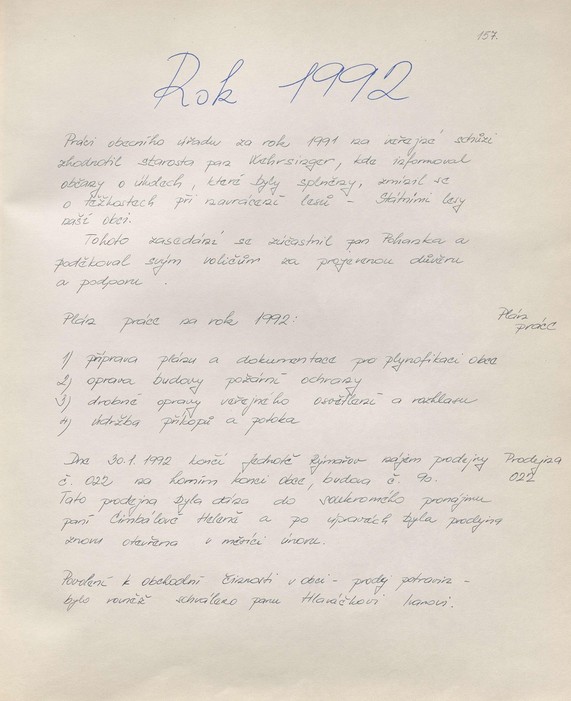 157.
Rok 1992
Práci obecního úřadu za rok 1991 na veřejné schůzi
zhodnotil starosta pan Wehrsinger, kde informoval
občany o úkolech, které byly splněny, zmínil se
o těžkostech při navrácení lesů - Státními lesy
naší obci.
Tohoto zasedání se zúčastnil pan Pohanka a
poděkoval svým voličům za projevenou důvěru
a podporu.
Plán práce na rok 1992:
Plán
práce
1) příprava plánu a dokumentace pro plynofikaci obce
2) oprava budovy požární ochrany
3) drobné opravy veřejného osvětlení a rozhlasu
4) údržba příkopů a potoka
Dne 30.1.1992 končí Jednotě Rýmařov nájem prodejny
Prodejna
č. 022 na horním konci obce, budova č. 90.
022
Tato prodejna byla dána do soukromého pronájmu
paní Cimbálové Heleně a po úpravách byla prodejna
znovu otevřena v měsíci únoru.
Povolení k obchodní činnosti v obci - prodej potravin -
bylo rovněž schváleno panu Hlaváčkovi Ivanovi.